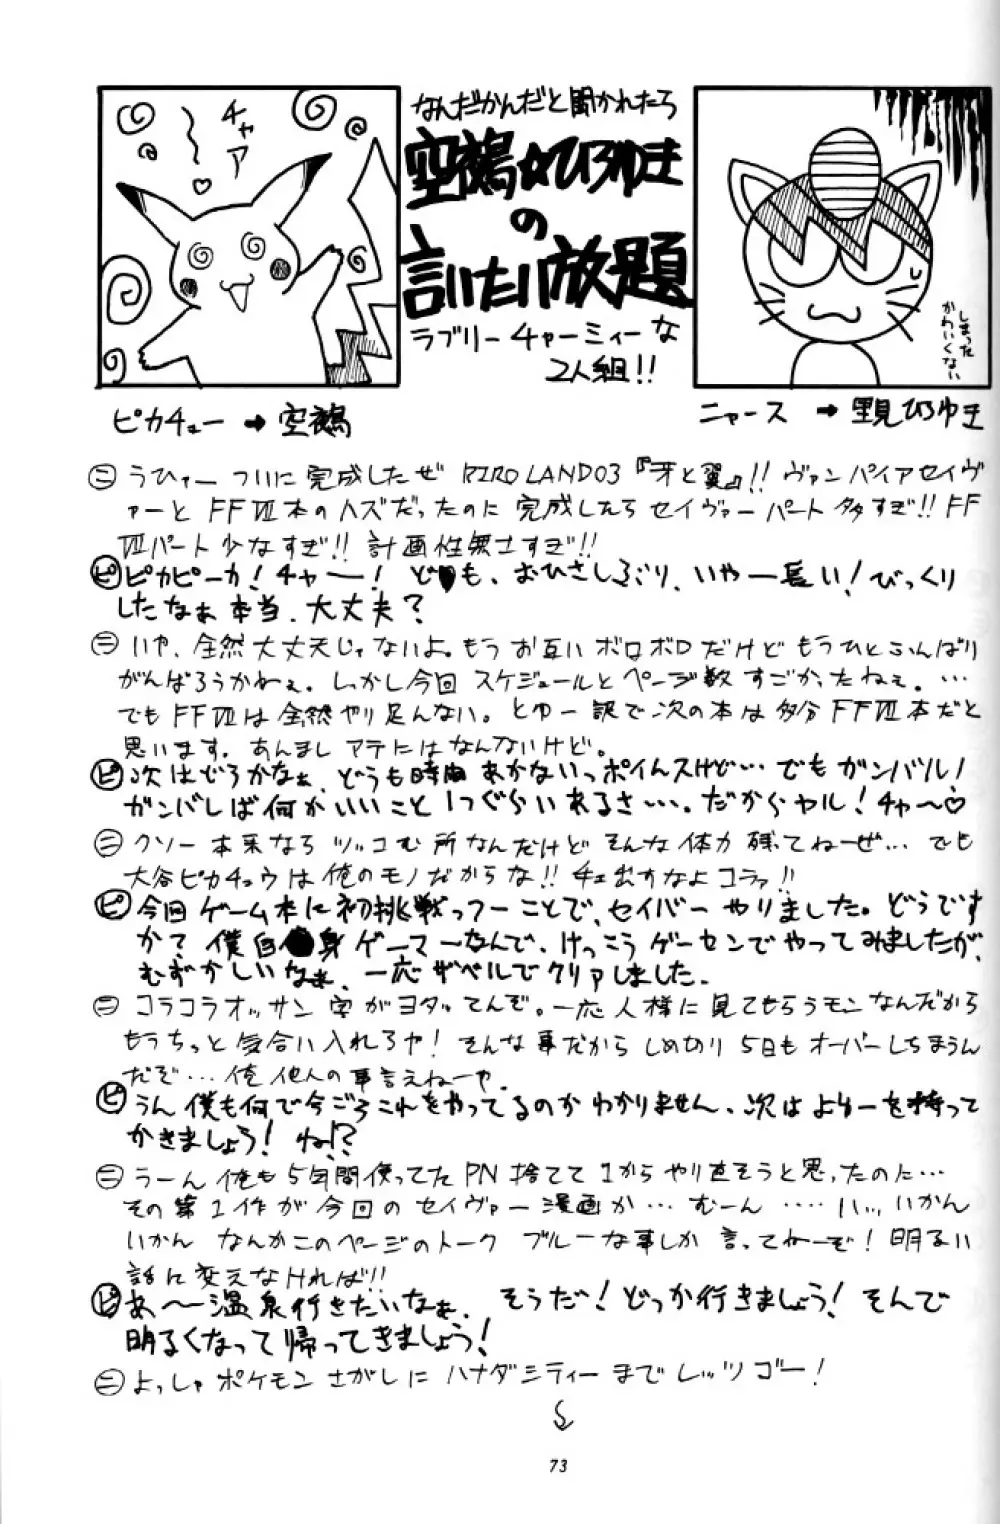 チャア
♡
なんだかんだと聞かれたら
空鵺☆ひろゆき
の
言いたい放題
ラブリーチャーミィーな
2人組!!
しまった
かわいくない
ピカチュー → 空鵺
ニャース → 里見ひろゆき
ニ うひゃー ついに完成したぜ RIRO LAND03『牙と翼』!! ヴァンパイアセイヴ
ァーと FFⅦ本のハズだったのに 完成したらセイヴァーパート多すぎ!! FF
Ⅶパート少なすぎ!! 計画性無さすぎ!!
ピ ピカピーカ! チャー! ども、おひさしぶり、いやー長い! びっくり
したなぁ本当、大丈夫?
ニ いや、全然大丈夫じゃないよ。もう お互いボロボロだけど もうひとふんばり
がんばろうかねぇ。しっかし今回 スケジュールとページ数すごかったねぇ。…
でもFFⅦは全然やり足んない。とゆー訳で次の本は多分FFⅦ本だと
思います。あんましアテにはなんないけど。
ピ 次はどうかなぁ、どうも時間あかないっポイんスけど… でもガンバル!
ガンバレば何かいいこと1つぐらいあるさ…。だからヤル! チャ〜♡
ニ クソー本来なら ツッコむ所なんだけど そんな体力残ってねーぜ… でも
大谷ピカチュウは俺のモノだからな!! チェ出すなよコラァ!!
ピ 今回ゲーム本に初挑戦っつーことで、セイバーやりました。どうです
か? 僕自身ゲーマーなんで、けっこうゲーセンでやってみましたが、
むずかしいなぁ、一応ザベルでクリアしました。
ニ コラコラオッサン 字がヨタってんぞ。一応人様に見てもらうモンなんだから
もうちっと気合い入れろや! そんな事だから しめ切り5日もオーバーしちまうん
だぞ… 俺他人の事言えねーや。
ピ うん僕も何で今ごろこれをやってるのかわかりません、次はよゆーを持って
かきましょう! ね!?
ニ うーん俺も5年間使ってたPN捨てて1からやり直そうと思ったのに…
その第1作が今回のセイヴァー漫画か… むーん ‥‥ ハッ、いかん
いかん なんかこのページのトーク ブルーな事しか言ってねーぞ! 明るい
話に変えなければ!!
ピ あ〜温泉行きたいなぁ、 そうだ! どっか行きましょう! そんで
明るくなって帰ってきましょう!
ニ よっしゃポケモンさがしにハナダシティーまでレッツゴー!
73